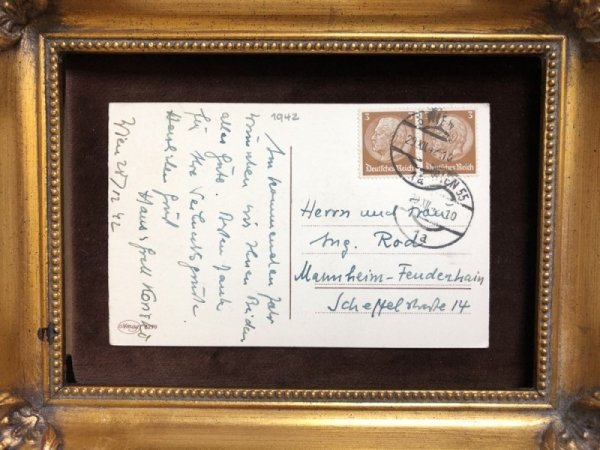 1942
Im kommenden Jahr
wünschen wir Ihnen Beiden
alles Gute. Vielen Dank
für Ihre
Herzlichen Gruß
Hans
Wien 12 42
3
Deutsches Reich
3
Deutsches Reich
WIEN 55
1a
1a
Herrn und Frau
Ing. Rod
Mannheim-Feudenheim
Scheffelstraße 14